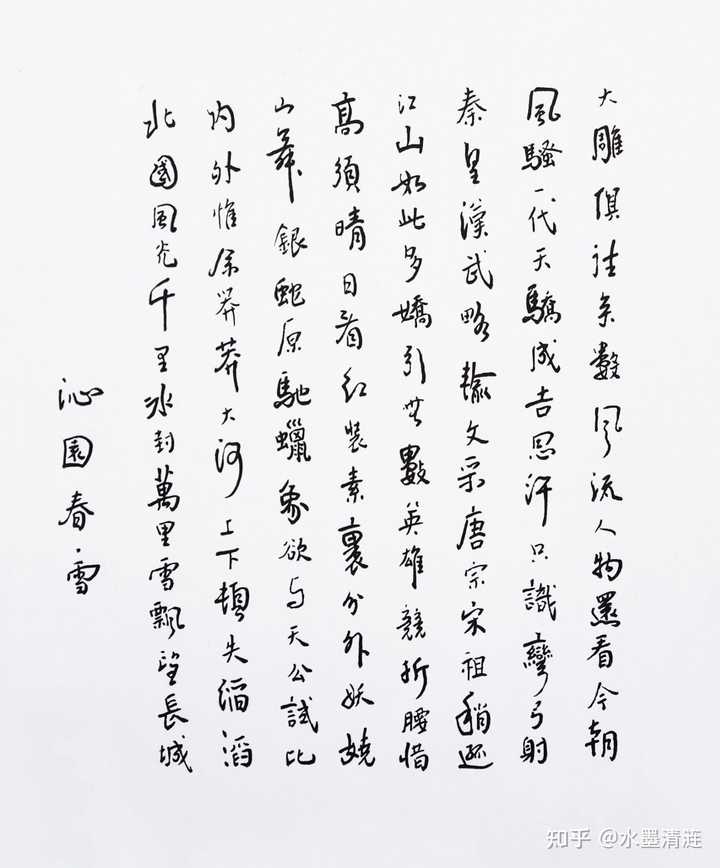 沁園春·雪
北國風光千里冰封萬里雪飄望長城
内外惟餘莽莽大河上下頓失滔滔
山舞銀蛇原馳蠟象欲与天公試比
高須晴日看紅裝素裹分外妖嬈
江山如此多嬌引無數英雄競折腰惜
秦皇漢武略輸文采唐宗宋祖稍遜
風騷一代天驕成吉思汗只識彎弓射
大雕俱往矣數風流人物還看今朝
知乎 @水墨清涟